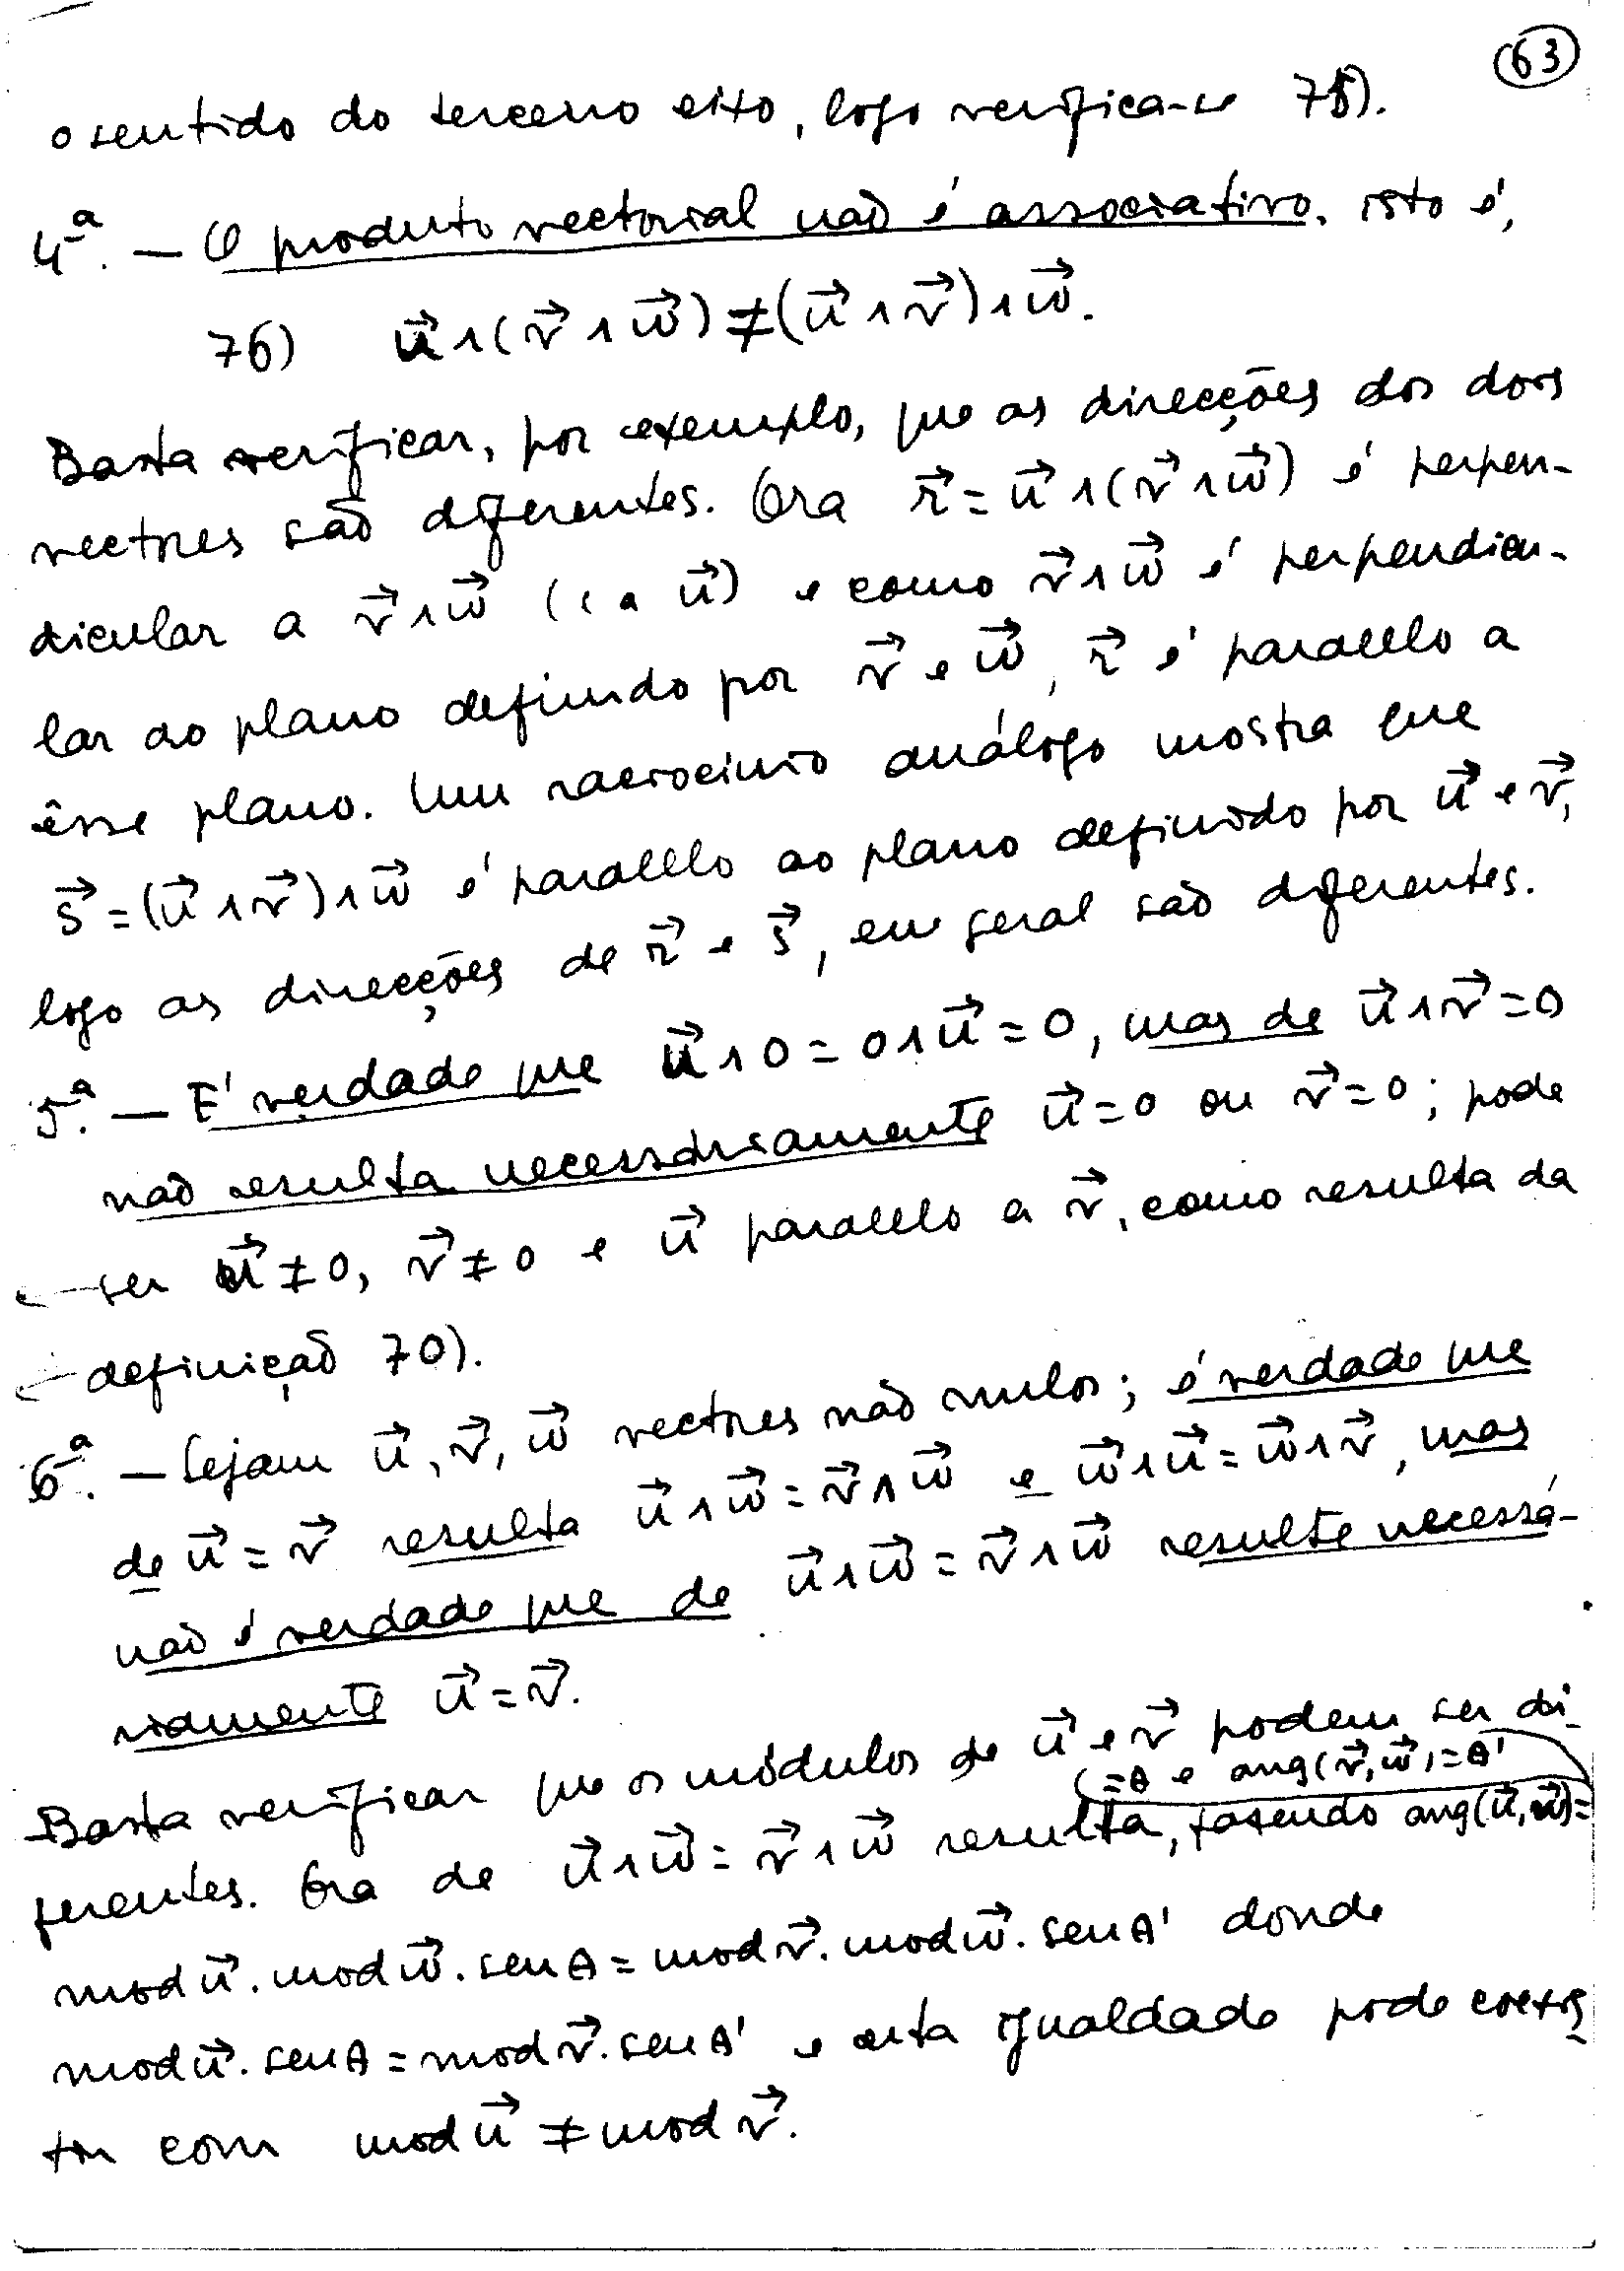 63
o sentido do terceiro eixo, logo verifica-se 75).
4ª. — O produto vectorial não é associativo, isto é,
76) u⃗∧(v⃗∧w⃗)≠(u⃗∧v⃗)∧w⃗.
Basta verificar, por exemplo, que as direcções dos dois
vectores são diferentes. Ora r⃗=u⃗∧(v⃗∧w⃗) é perpen-
dicular a v⃗∧w⃗ (e a u⃗) e como v⃗∧w⃗ é perpendicu-
lar ao plano definido por v⃗ e w⃗, r⃗ é paralelo a
êsse plano. Um raciocinio análogo mostra que
s⃗=(u⃗∧v⃗)∧w⃗ é paralelo ao plano definido por u⃗ e v⃗,
logo as direcções de r⃗ e s⃗, em geral são diferentes.
5ª. — É verdade que u⃗∧0=0∧u⃗=0, mas de u⃗∧v⃗=0
não resulta necessáriamente u⃗=0 ou v⃗=0; pode
ser u⃗≠0, v⃗≠0 e u⃗ paralelo a v⃗, como resulta da
definição 70).
6ª. — Sejam u⃗, v⃗, w⃗ vectores não nulos; é verdade que
de u⃗=v⃗ resulta u⃗∧w⃗=v⃗∧w⃗ e w⃗∧u⃗=w⃗∧v⃗, mas
não é verdade que de u⃗∧w⃗=v⃗∧w⃗ resulte necessá-
riamente u⃗=v⃗.
Basta verificar que os módulos de u⃗ e v⃗ podem ser di-
ferentes. Ora de u⃗∧w⃗=v⃗∧w⃗ resulta, fazendo ang(u⃗,w⃗)=
=A e ang(v⃗,w⃗)=A'
mod u⃗. mod w⃗. sen A=mod v⃗. mod w⃗. sen A' donde
mod u⃗. sen A=mod v⃗. sen A' e esta igualdade pode coexis
tir com mod u⃗≠mod v⃗.